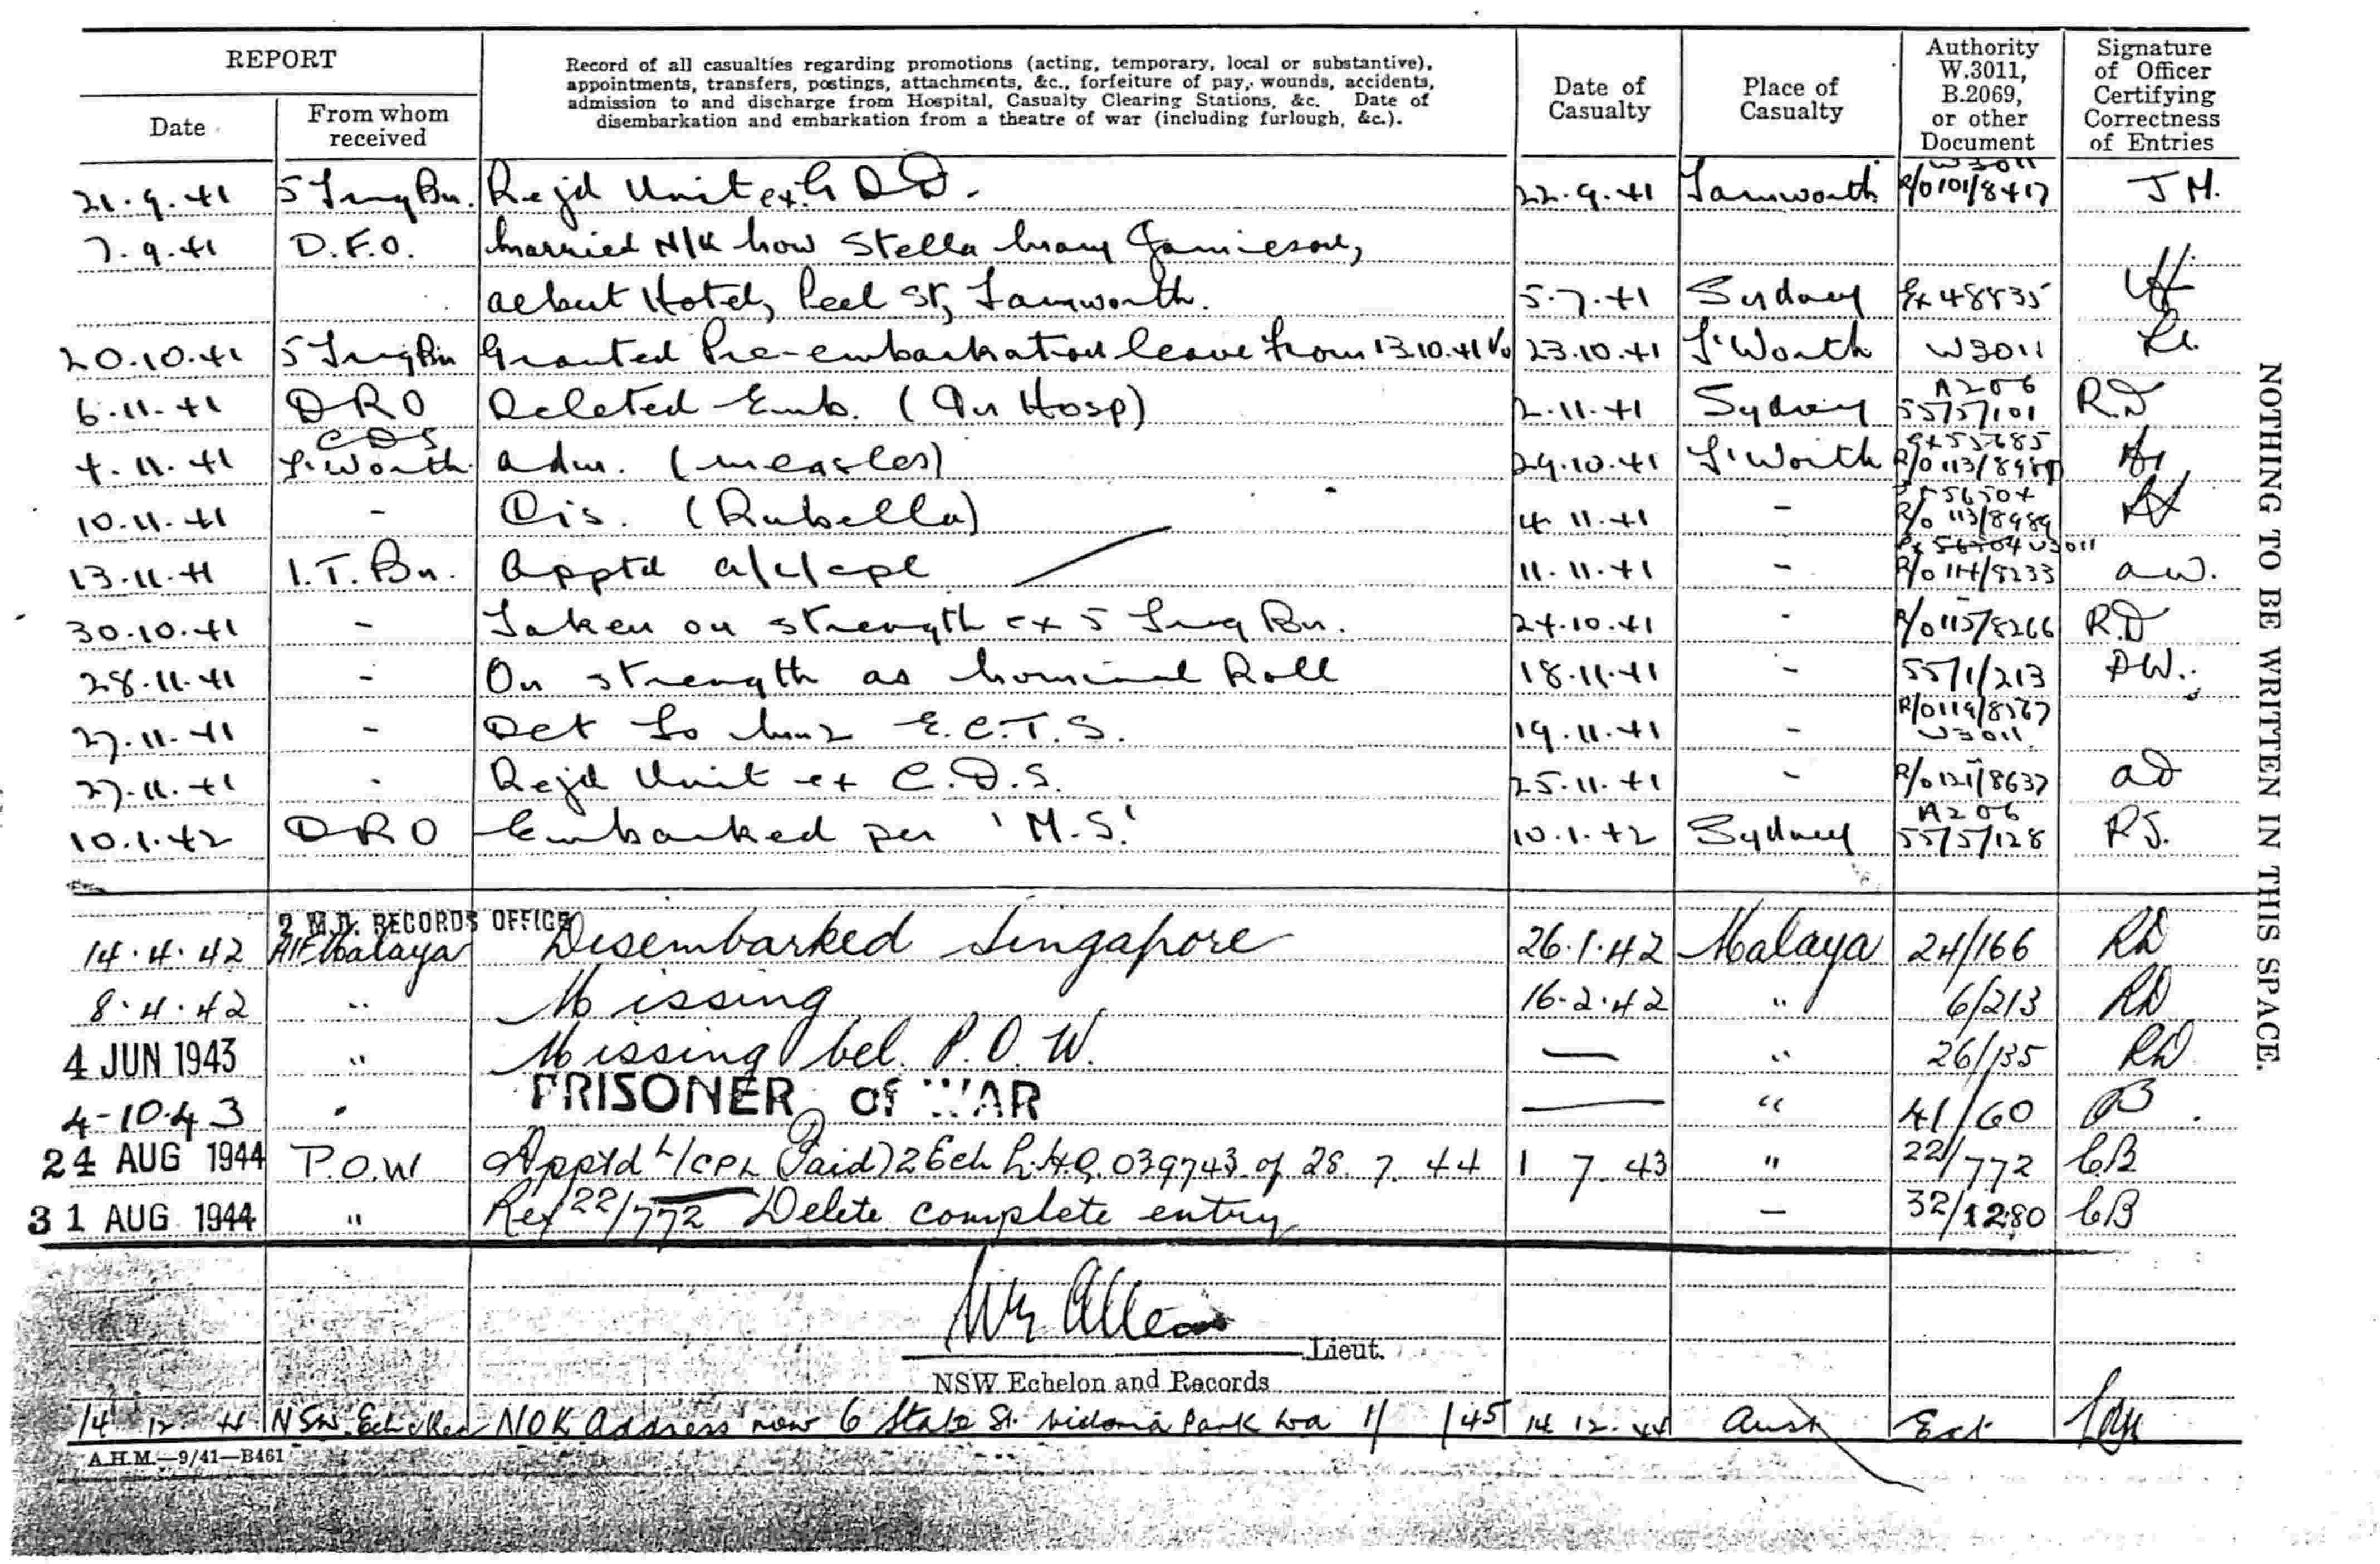 REPORT
Date
From whom received
Record of all casualties regarding promotions (acting, temporary, local or substantive),
appointments, transfers, postings, attachments, &c., forfeiture of pay, wounds, accidents,
admission to and discharge from Hospital, Casualty Clearing Stations, &c. Date of
disembarkation and embarkation from a theatre of war (including furlough, &c.).
Date of Casualty
Place of Casualty
Authority W.3011, B.2069, or other Document
Signature of Officer Certifying Correctness of Entries
21.9.41 5 Trng Bn. Rejd Unit ex. G D D. 22.9.41 Tamworth W3011 R/O 101/8417 J M.
7.9.41 D.F.O. Married N/K now Stella Mary Jamieson,
Albert Hotel, Peel St, Tamworth. 5.7.41 Sydney Ex 48835
20.10.41 5 Trng Bn Granted Pre-embarkation leave from 13.10.41 to 23.10.41 T'Worth W3011
6.11.41 DRO Deleted Emb. (In Hosp) 2.11.41 Sydney A206 55/5/101 R.D
4.11.41 CDS T'Worth. Adm. (measles) 29.10.41 T'Worth
10.11.41 - Dis. (Rubella) 4.11.41 - R/O 113/8989
13.11.41 I.T.Bn. Apptd a/l/cpl 11.11.41 - W3011 R/O 114/8233 AW.
30.10.41 - Taken on strength ex 5 Trng Bn. 24.10.41 - R/O 115/8266 R.D
28.11.41 - On strength as Nominal Roll 18.11.41 - 55/1/213 AW.
27.11.41 - Det to No 2 E.C.T.S. 19.11.41 - W3011
27.11.41 - Rejd Unit ex C.D.S. 25.11.41 - R/O 121/8637 AD
10.1.42 DRO Embarked per 'M.S.' 10.1.42 Sydney A206 55/5/128 RS.
2 M.D. RECORDS OFFICE
14.4.42 AIF Malaya Disembarked Singapore 26.1.42 Malaya 24/166 RD
8.4.42 " Missing 16.2.42 " 6/213 RD
4 JUN 1943 " Missing bel. P.O.W. — " 26/135 RD
4-10.43 " PRISONER of WAR — " 41/60 B
24 AUG 1944 P.O.W Appt'd L/CPL (Paid) 2 Ech L.H.Q. 039743 of 28.7.44 1 7 43 " 22/772 CB
31 AUG 1944 " Ref 22/772 Delete complete entry — 32/1280 CB
Lieut.
NSW Echelon and Records
14 12 44 NSW Echelon NOK Address now 6 State St. Victoria Park WA 1/ /45 14 12. 44 Aust
A.H.M.—9/41—B461
NOTHING TO BE WRITTEN IN THIS SPACE.